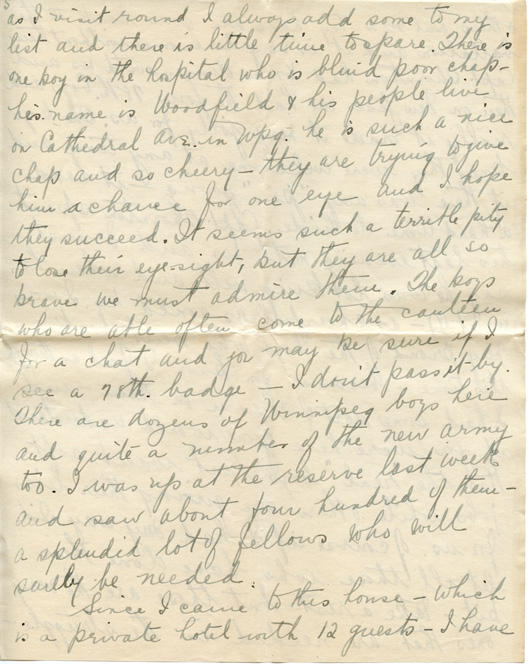 5
as I visit round I always add some to my
list and there is little time to spare. There is
one boy in the hospital who is blind poor chap -
his name is Woodfield & his people live
on Cathedral Ave. in Wpg. he is such a nice
chap and so cheery - they are trying to give
him a chance for one eye and I hope
they succeed. It seems such a terrible pity
to lose their eye-sight, but they are all so
brave we must admire them. The boys
who are able often come to the canteen
for a chat and you may be sure if I
see a 78th. badge - I don't pass it by.
There are dozens of Winnipeg boys here
and quite a number of the new army
too. I was up at the reserve last week
and saw about four hundred of them -
a splendid lot of fellows who will
surely be needed.
Since I came to this house - which
is a private hotel with 12 guests - I have